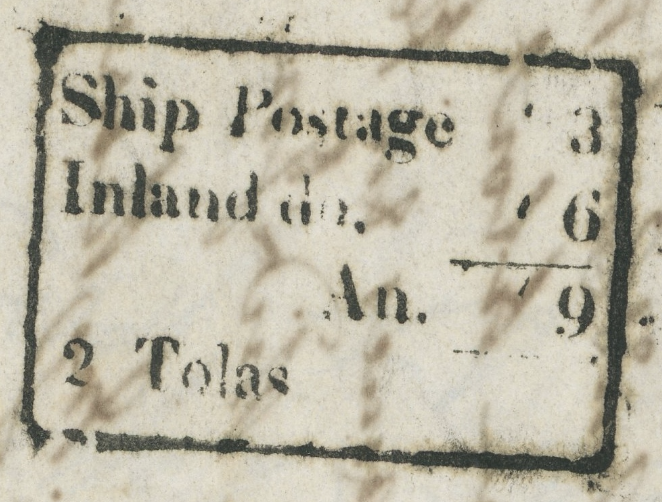 Ship Postage 3
Inland do. 6
An. 9
2 Tolas